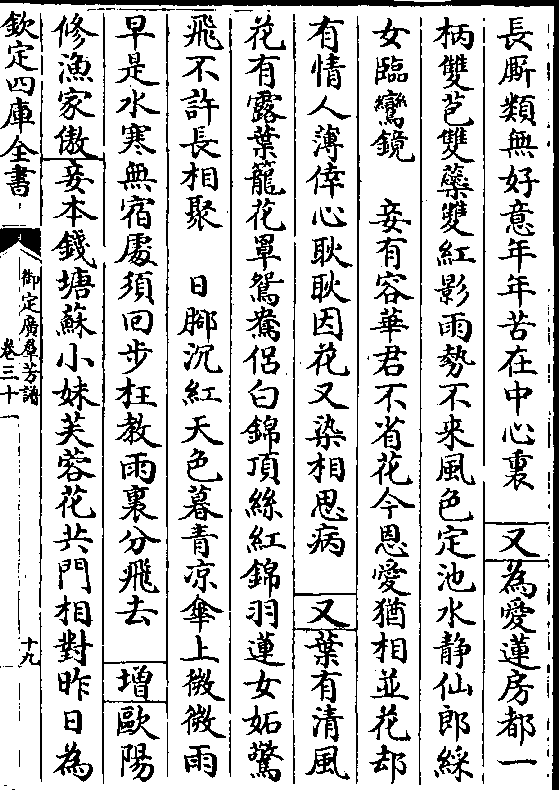 長厮類無好意年年苦在中心裏　又為愛蓮房都一
柄雙苞雙蘂雙紅影雨勢不来風色定池水静仙郎綵
女臨鸞鏡　妾有容華君不省花今恩愛猶相並花却
有情人薄倖心耿耿因花又染相思病　又葉有清風
花有露葉籠花罩鴛鴦侣白錦頂絲紅錦羽蓮女妬驚
飛不許長相聚　日脚沉紅天色暮青凉傘上微微雨
早是水寒無宿處須回步枉教雨裏分飛去　增歐陽
修漁家傲妾本錢塘蘇小妹芙蓉花共門相對昨日為
欽定四庫全書
御定廣羣芳譜
卷三十
十九